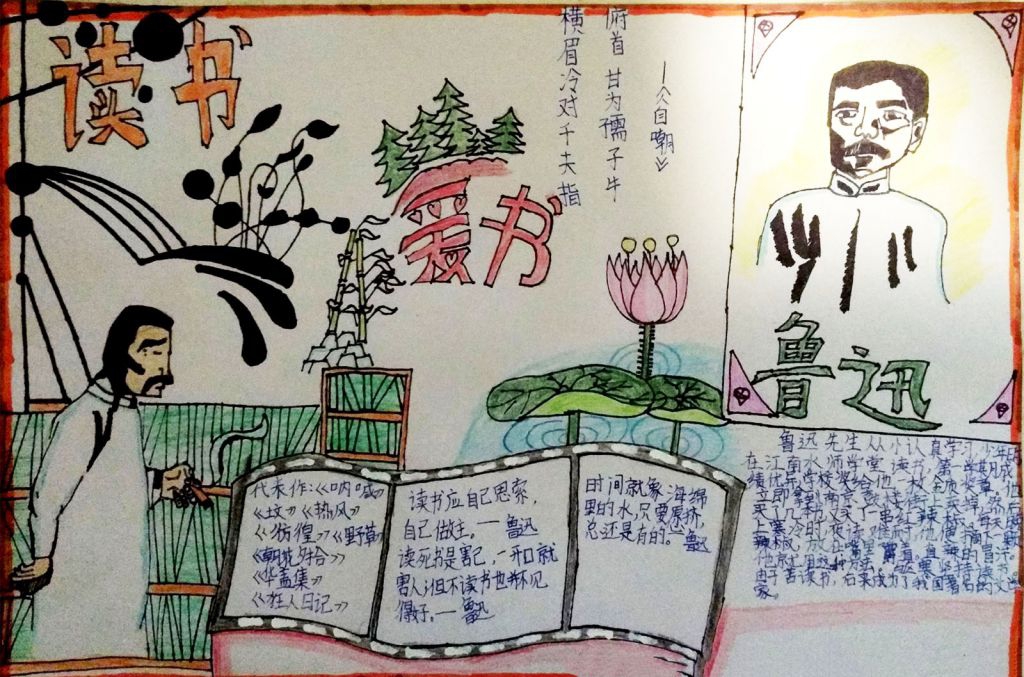 读书
爱书
横眉冷对千夫指
俯首 甘为孺子牛
—《自嘲》
鲁迅
代表作:《呐喊》
《坟》《热风》
《彷徨》《野草》
《朝花夕拾》
《华盖集》
《狂人日记》
读书应自己思索,
自己做主。—鲁迅
读死书是害己,一开口就
害人;但不读书也并不见
得好。—鲁迅
时间就象海绵
里的水,只要愿挤,
总还是有的。—鲁迅
鲁迅先生从小认真学习。少年时
在江南水师学堂读书,第一学期成
绩优异,学校奖给他一枚金质奖章,他
立即拿到南京鼓楼街头卖掉,然后
买了几本书,又买了一串红辣椒。每天晚
上寒冷时,夜读难耐,他便摘下一颗
辣椒,放在嘴里嚼着,直辣的额头冒汗。
他就用这种办法驱寒坚持读书。
由于苦读书,后来成为了我国著名的文学
家。